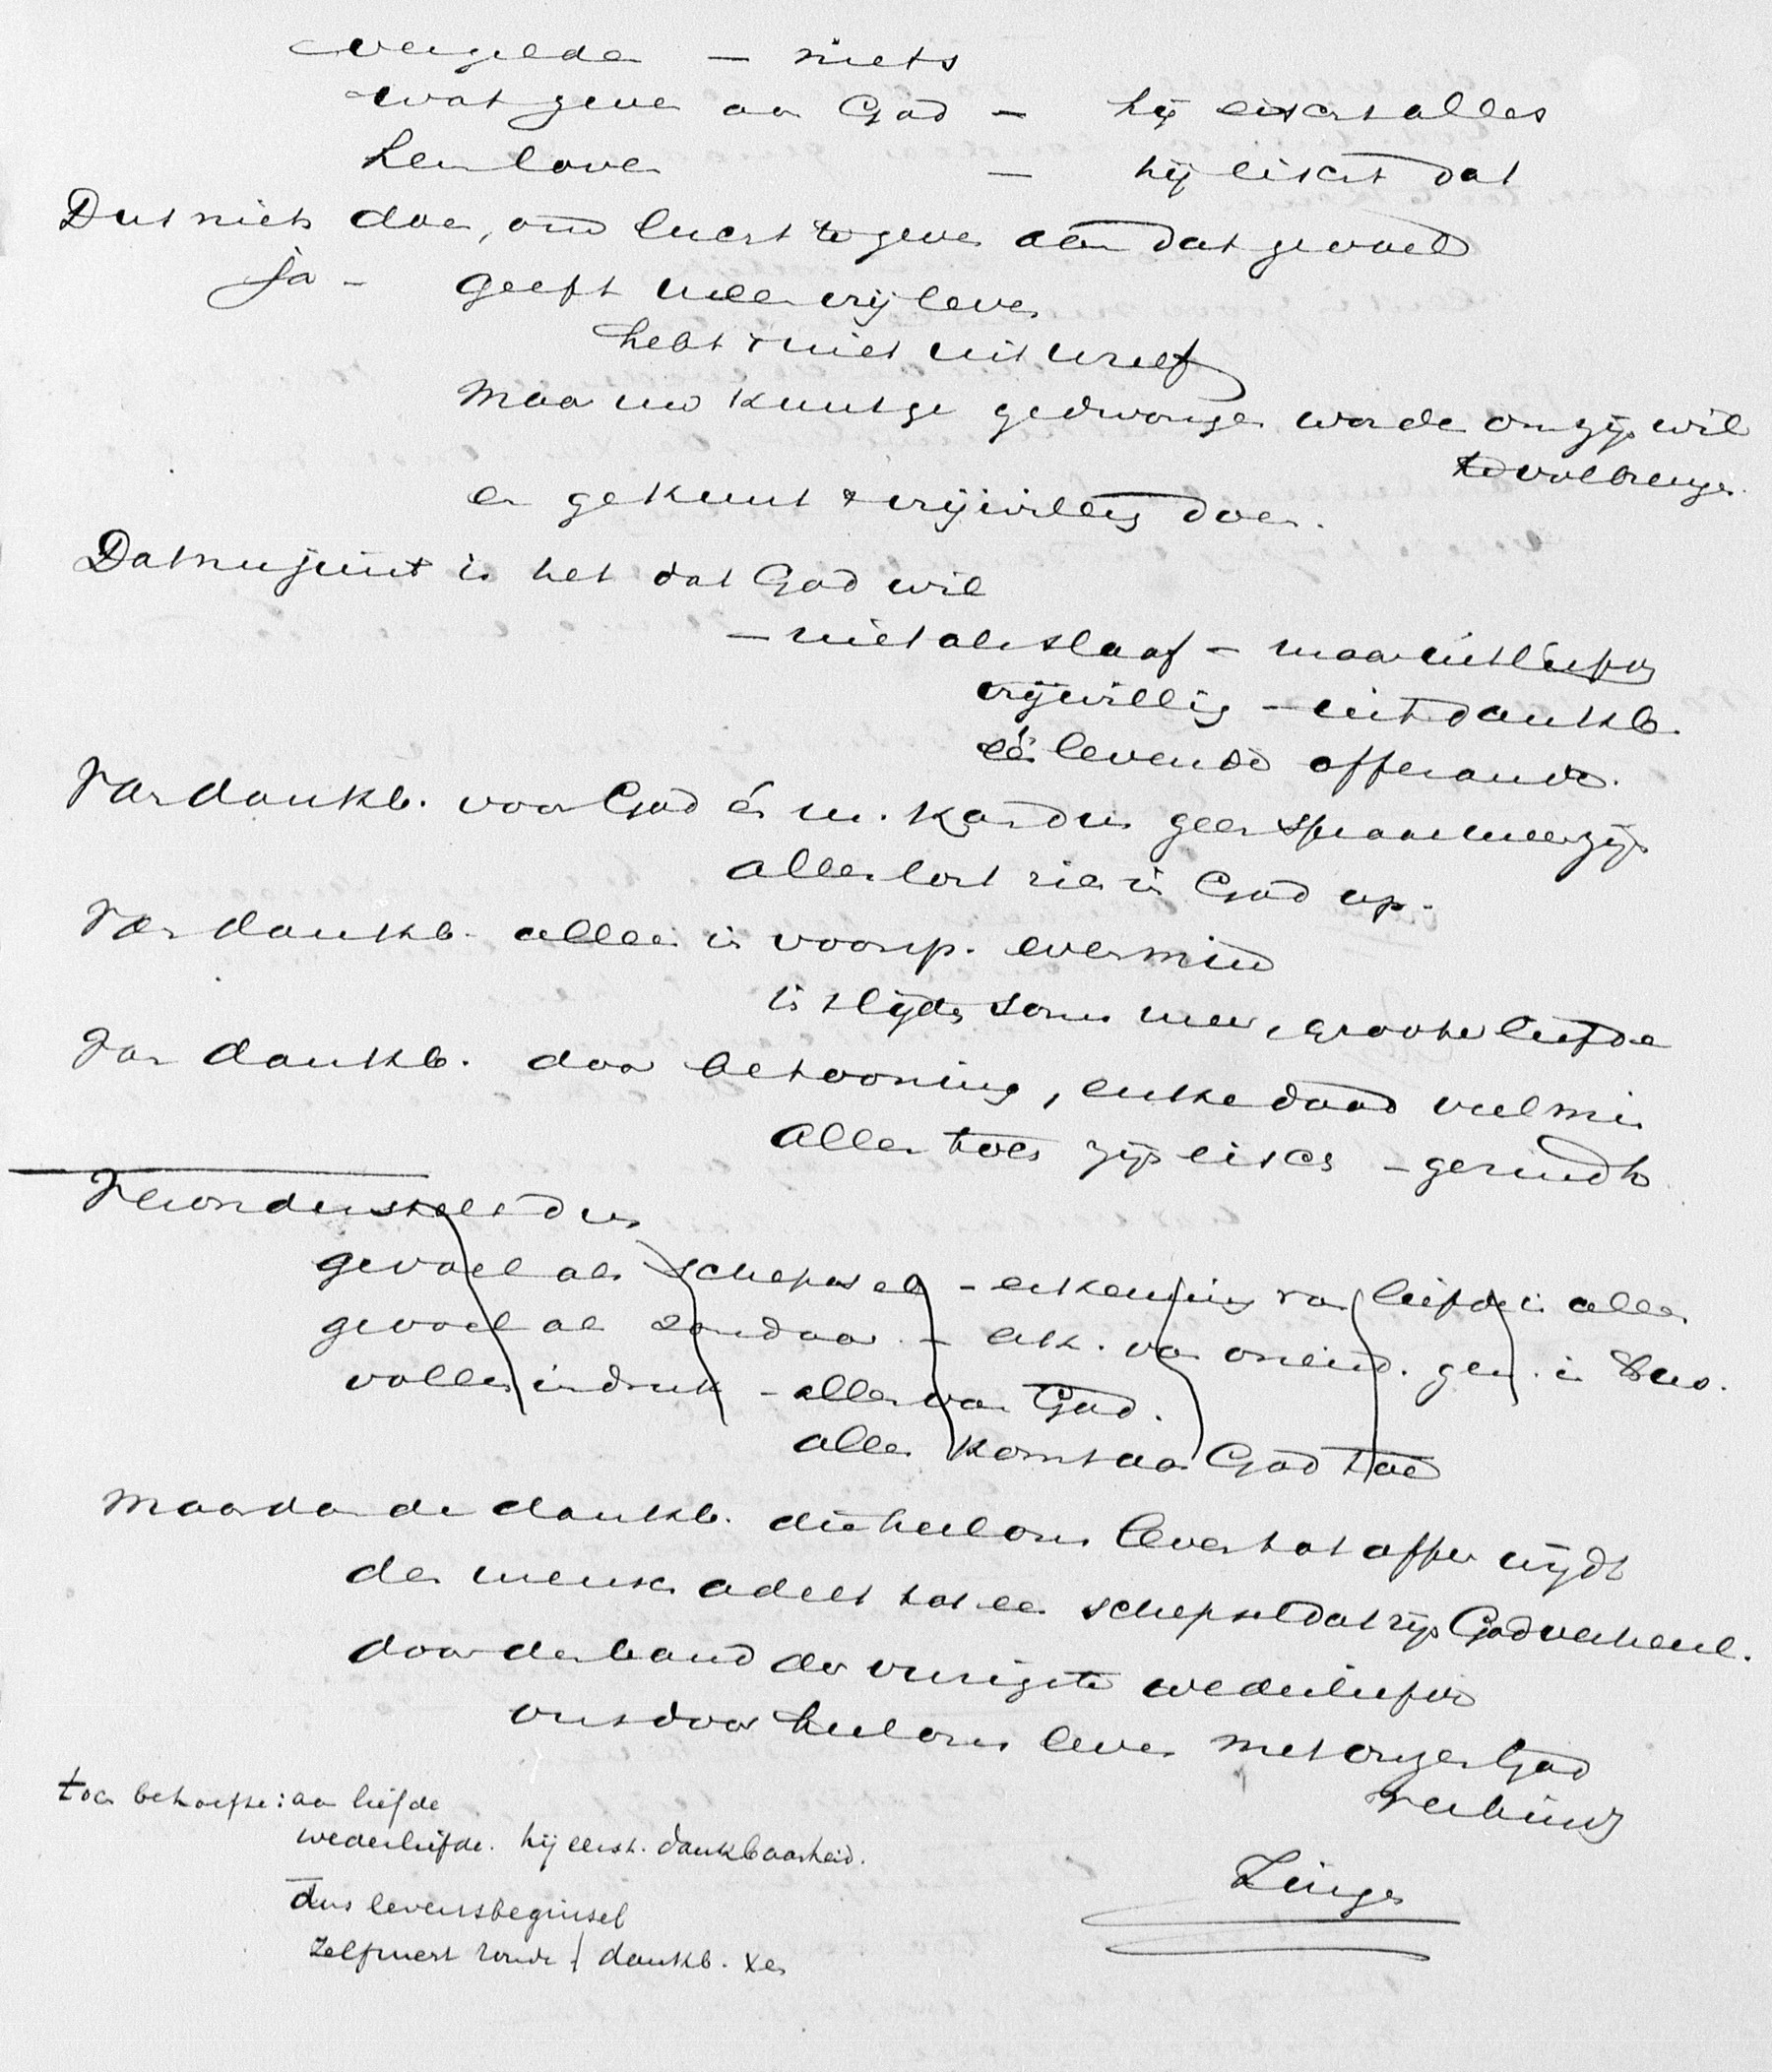 vergelden — niets
wat geven aan God — hij eischt alles
Hem loven — hij eischt dat
Dus niets doen, om lucht te geven aan dat gevoel
Ja — geeft uw vrij leven
hebt & niet uit uzelf
Maar uw kunt ge gedwongen worden om zijn wil
te volbrengen.
en ge kunt & vrijwillig doen.
Dat nu juist is het dat God wil
— niet als slaaf — maar uit liefde
vrijwillig — uit dankb.
één levende offerande.
Van dankb. voor God én m. kan dus geen spraak meer zijn
alles lost zich in God op.
Van dankb. alleen in voorsp. evenmin
is lijden soms meer, grooter liefde
Van dankb. door betooning, enkele daad veel min
alles toch zijn eisch — gezindh.
Veronderstelt dus
gevoel als schepsel — erkenning van liefde in alles
gevoel als zondaar — erk. van oneind. gen. in &
volle indruk — alles van God.
alles komt aan God toe
Maar dan de dankb. die heel ons leven tot offer wijdt
den mensch adelt tot een schepsel dat zijn God verheerl.
door den band der innigste wederliefde
ons door heel ons leven met onzen God
verbindt
Zingen
toen behoefte: aan liefde
wederliefde. hij eerst. dankbaarheid.
dus levensbeginsel
Zelfzucht zonde / dankb.